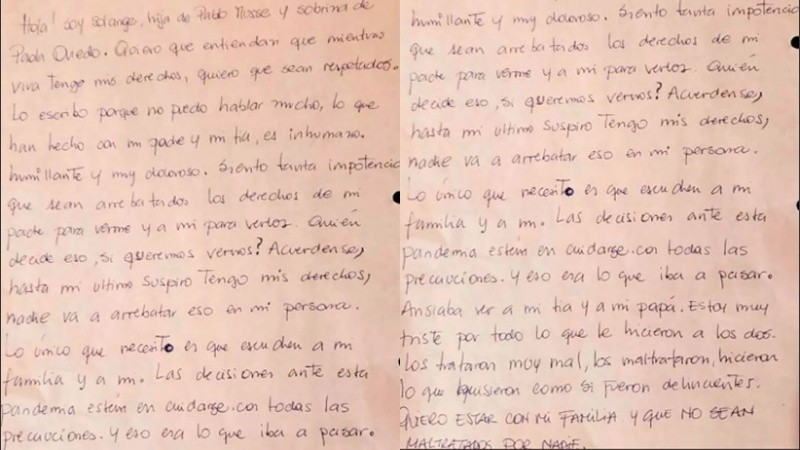 Hola! soy Solange, hija de Pablo Musse y sobrina de
Paola Oviedo. Quiero que entiendan que mientras
viva Tengo mis derechos, quiero que sean respetados.
Lo escribo porque no puedo hablar mucho, lo que
han hecho con mi padre y mi tia, es inhumano.
humillante y muy doloroso. Siento tanta impotencia
que sean arrebatados los derechos de mi
padre para verme y a mi para verlos. Quién
decide eso, si queremos vernos? Acuerdense,
hasta mi ultimo suspiro Tengo mis derechos,
nadie va a arrebatar eso en mi persona.
Lo único que necesito es que escuchen a mi
familia y a mi. Las decisiones ante esta
pandemia estém en cuidarse con todas las
precauciones. Y eso era lo que iba a pasar.
humillante y muy doloroso. Siento tanta impotencia
que sean arrebatados los derechos de mi
padre para verme y a mi para verlos. Quién
decide eso, si queremos vernos? Acuerdense,
hasta mi ultimo suspiro Tengo mis derechos,
nadie va a arrebatar eso en mi persona.
Lo único que necesito es que escuchen a mi
familia y a mi. Las decisiones ante esta
pandemia estém en cuidarse con todas las
precauciones. Y eso era lo que iba a pasar.
Ansiaba ver a mi tia y a mi papá. Estoy muy
triste por todo lo que le hicieron a los dos.
Los trataron muy mal, los maltrataron, hicieron
lo que quisieron como si fueron delincuentes.
QUIERO ESTAR CON MI FAMILIA Y QUE NO SEAN
MALTRATADOS POR NADIE.